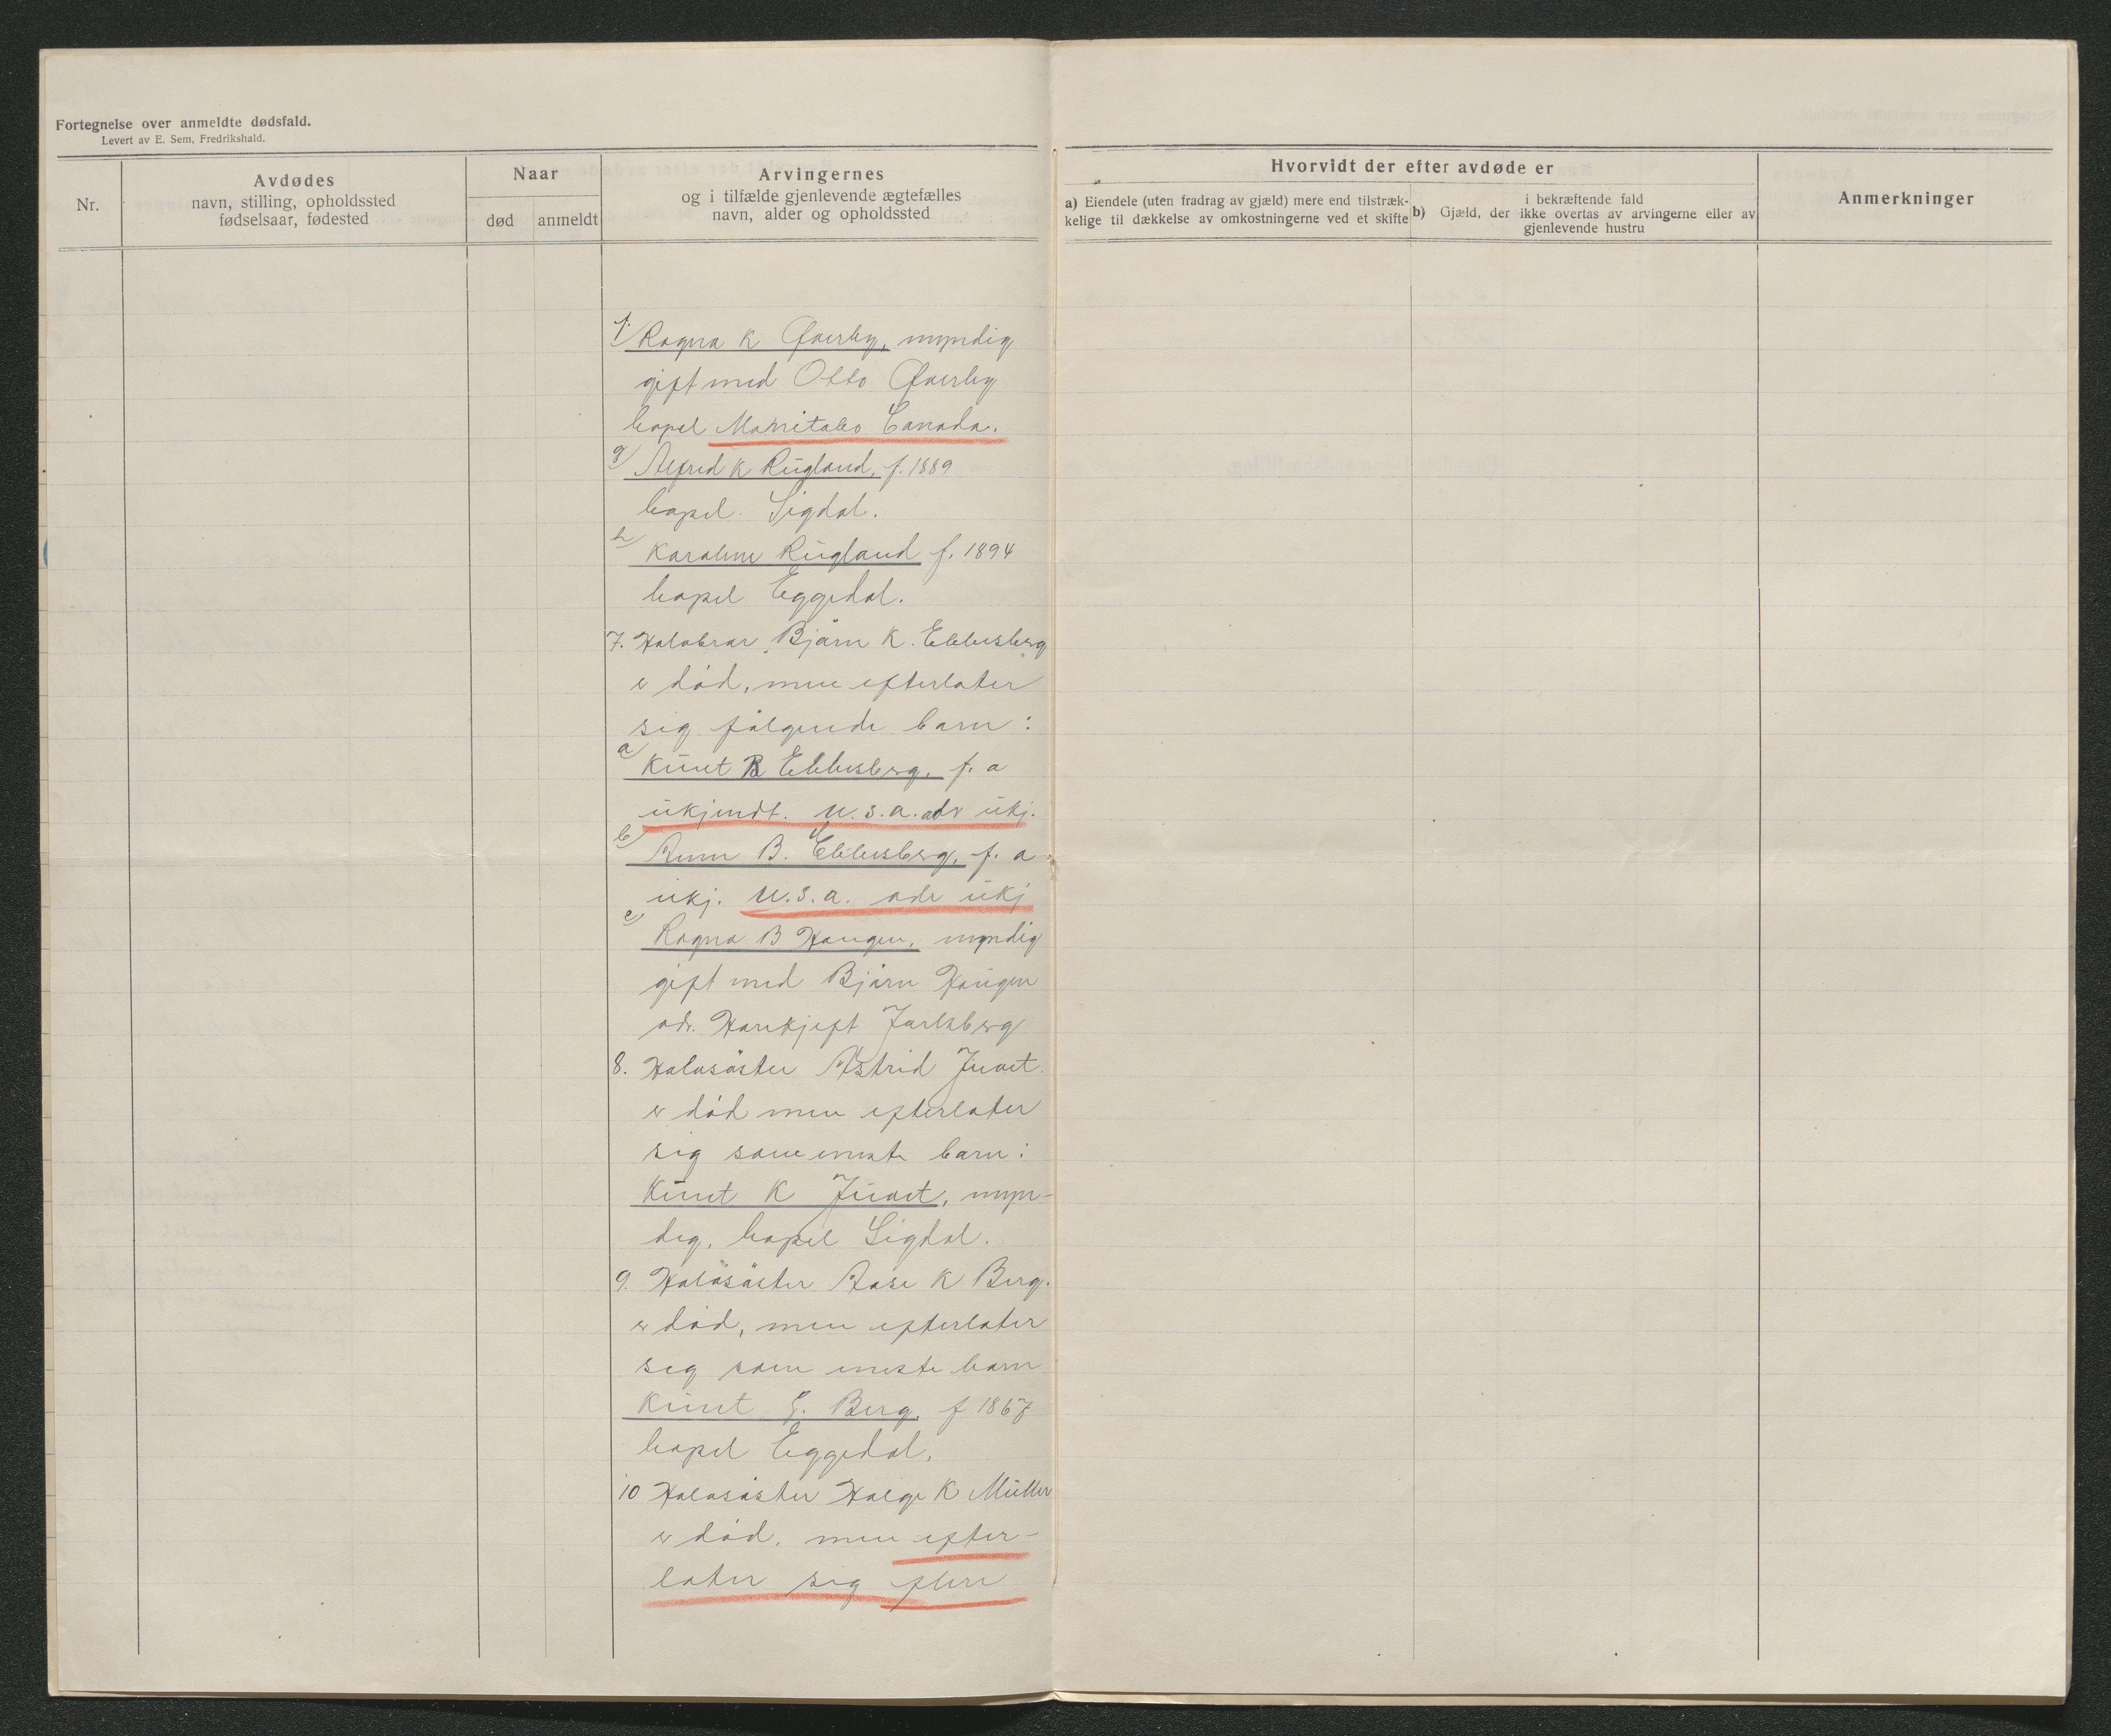 Fortegnelse over anmeldte dødsfald.
Levert av E. Sem, Fredrikshald.
Nr.
Avdødes
navn, stilling, opholdssted
fødselsaar, fødested
Naar
død
anmeldt
Arvingernes
og i tilfælde gjenlevende ægtefælles
navn, alder og opholdssted
Hvorvidt der efter avdøde er
a) Eiendele (uten fradrag av gjæld) mere end tilstræk-
kelige til dækkelse av omkostningerne ved et skifte
b) Gjæld, der i bekræftende fald
ikke overtas av arvingerne eller av
gjenlevende hustru
Anmerkninger
f. Ragna K myndig
gift med Otto
bopel Manitabo Canada.
g Alfred K Rugland, f. 1889
bopel. Sigdal.
h Karoline Rugland f. 1894
bopel Eggedal.
7. Halvbror Bjørn K. Ebbesberg
er død, men efterlater
sig følgende barn:
a Knut B Ebbesberg, f. a
ukjendt. U.S.A. adr ukj.
b B. Ebbesberg, f. a
ukj. U.S.A. adr ukj
c Ragna B Haugen, myndig
gift med Bjørn Haugen
adr. Jarlsberg
8. Halvsøster Astrid Juvet
er død men efterlater
sig som eneste barn:
Knut K Juvet, myn-
dig, bopel Sigdal.
9. Halvsøster Aase K Berg.
er død, men efterlater
sig som eneste barn
Knut G. Berg, f 1867
bopel Eggedal.
10 Halvsøster Helge K Müller
er død, men efter-
later sig flere